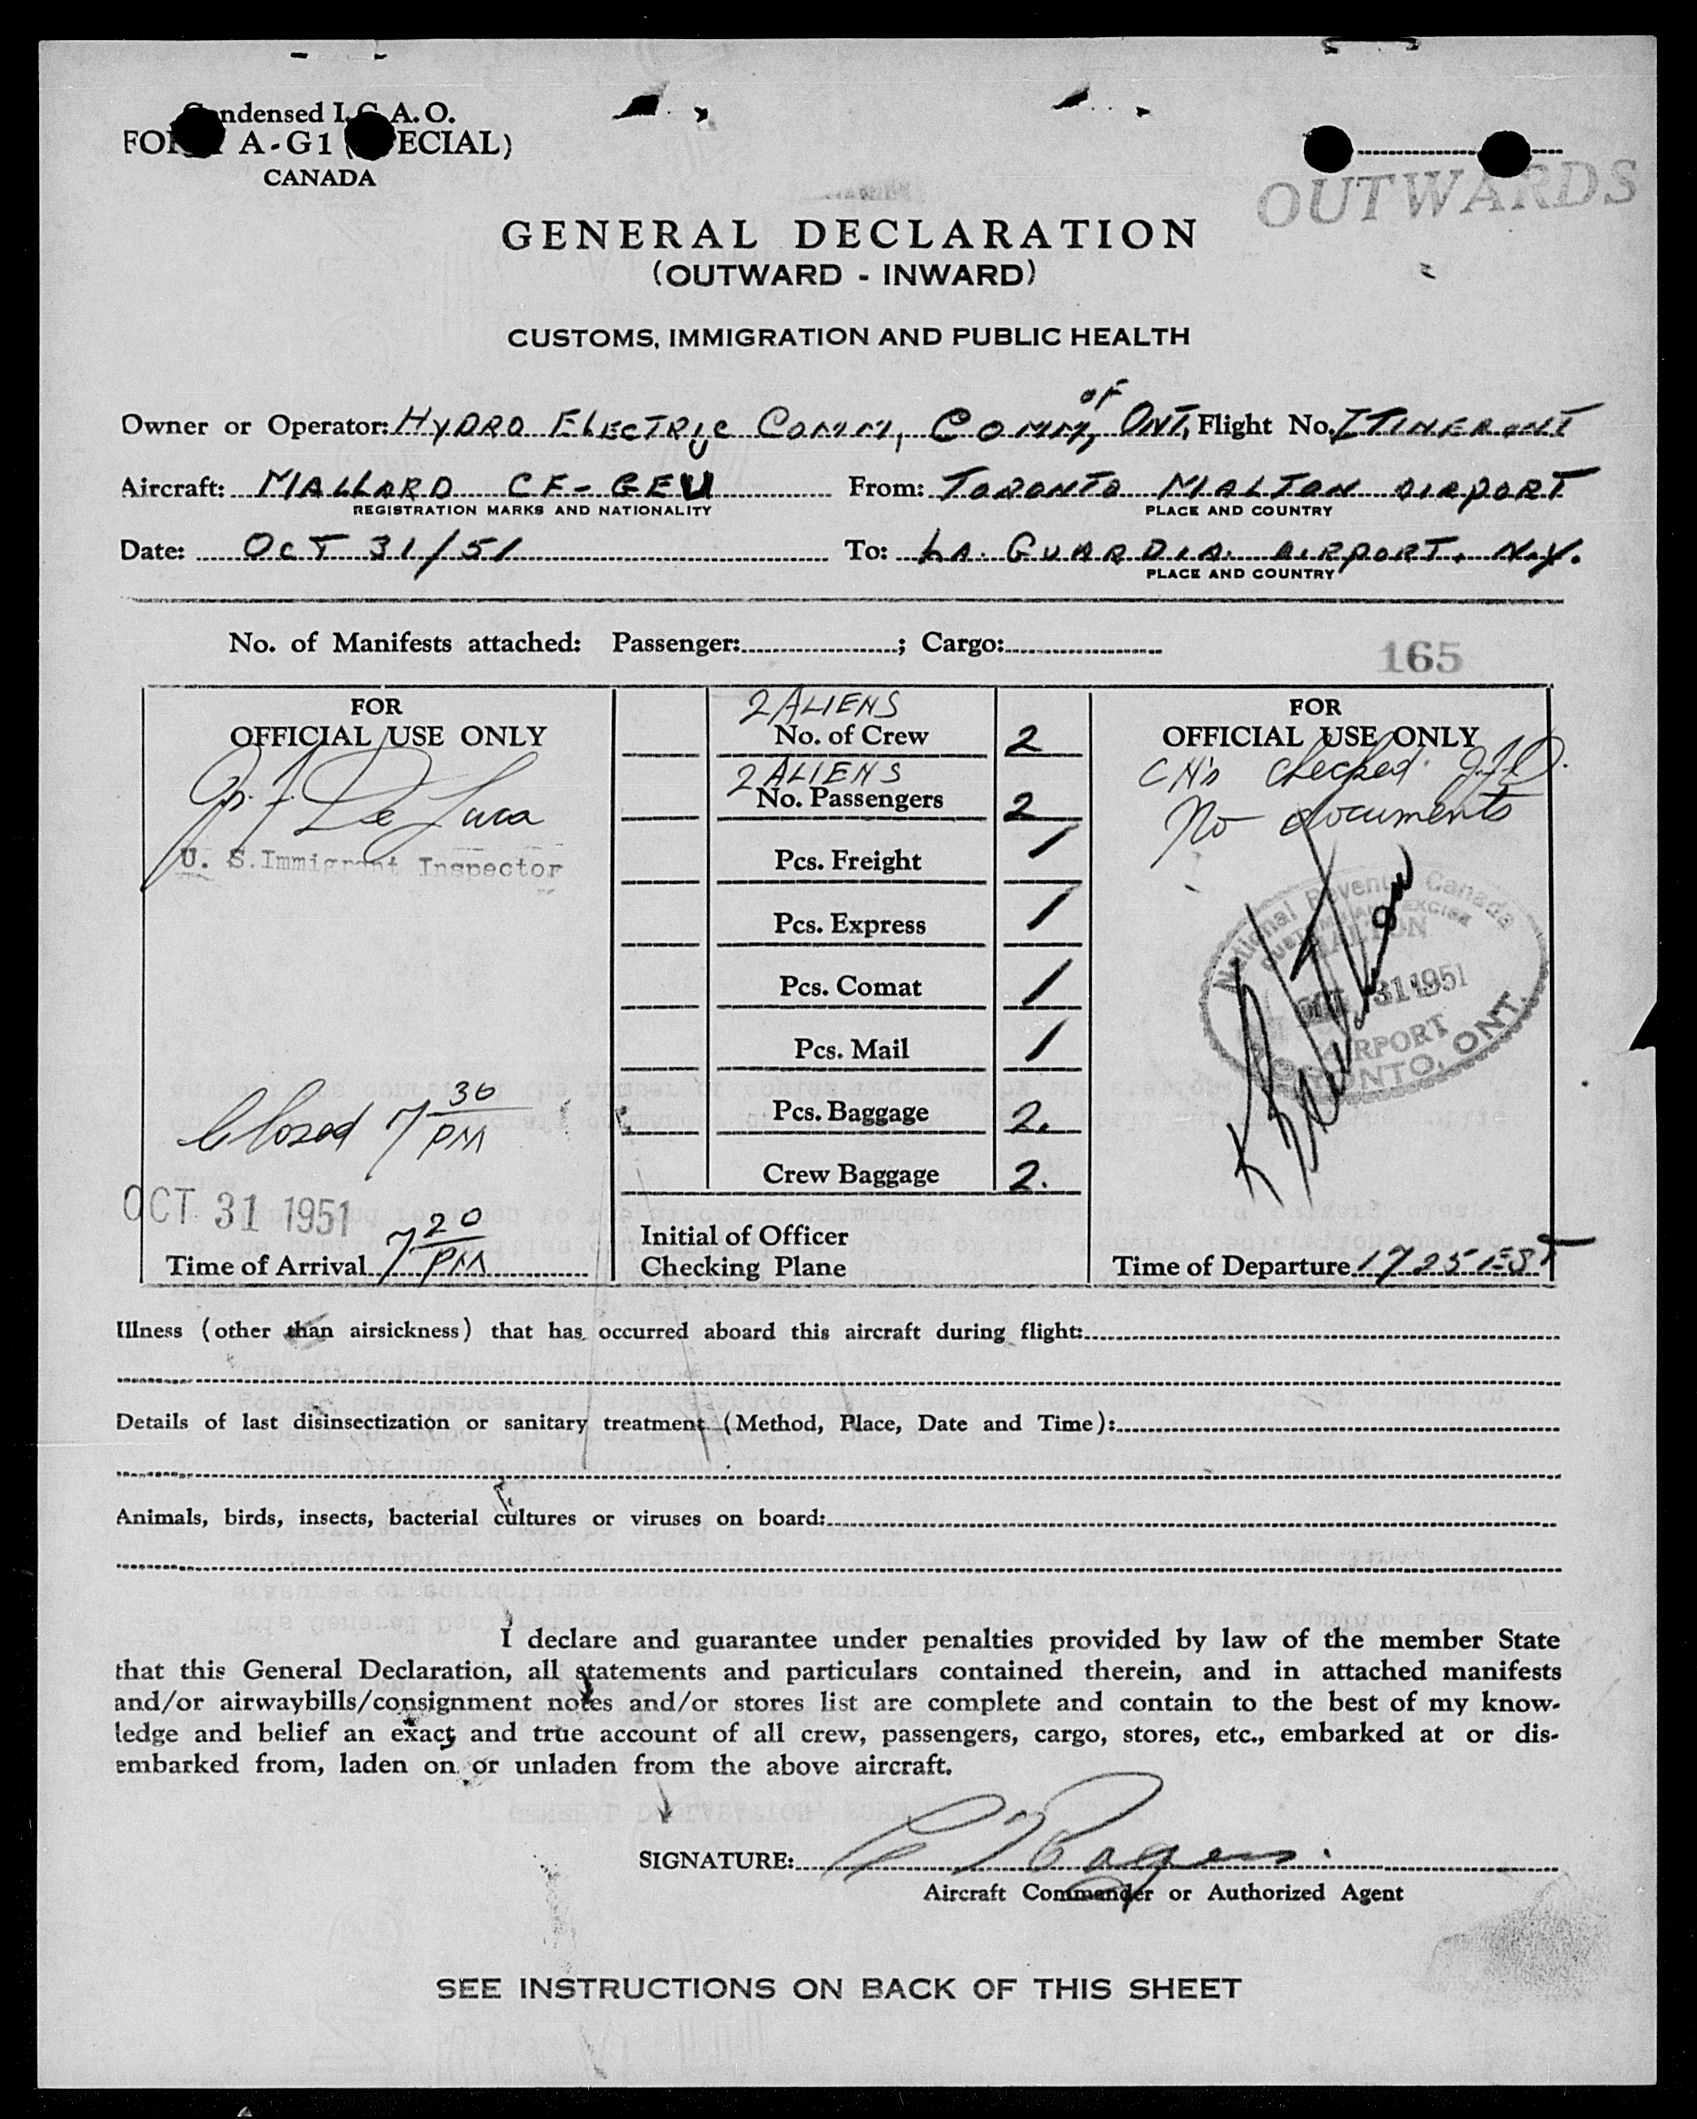 Condensed I.C.A.O.
FORM A-G1 (SPECIAL)
CANADA
OUTWARDS
GENERAL DECLARATION
(OUTWARD - INWARD)
CUSTOMS, IMMIGRATION AND PUBLIC HEALTH
Owner or Operator: HYDRO ELECTRIC COMM, COMM, OF ONT, Flight No. ITINERANT
Aircraft: MALLARD CF-GEU From: TORONTO MALTON AIRPORT
REGISTRATION MARKS AND NATIONALITY PLACE AND COUNTRY
Date: OCT 31/51 To: LA. GUARDIA. AIRPORT. N.Y.
PLACE AND COUNTRY
No. of Manifests attached: Passenger: ; Cargo:
165
FOR
OFFICIAL USE ONLY
De Luca
U. S. Immigrant Inspector
Closed 7 30 PM
OCT 31 1951
Time of Arrival 7 20 PM
2 ALIENS
No. of Crew 2
2 ALIENS
No. Passengers 2
Pcs. Freight /
Pcs. Express /
Pcs. Comat /
Pcs. Mail /
Pcs. Baggage 2.
Crew Baggage 2.
Initial of Officer
Checking Plane
FOR
OFFICIAL USE ONLY
checked
No documents
National Revenue Canada
CUSTOMS AND EXCISE
MALTON
OCT 31 1951
AIRPORT
TORONTO, ONT.
Time of Departure 1725 EST
Illness (other than airsickness) that has occurred aboard this aircraft during flight:
Details of last disinsectization or sanitary treatment (Method, Place, Date and Time):
Animals, birds, insects, bacterial cultures or viruses on board:
I declare and guarantee under penalties provided by law of the member State
that this General Declaration, all statements and particulars contained therein, and in attached manifests
and/or airwaybills/consignment notes and/or stores list are complete and contain to the best of my know-
ledge and belief an exact and true account of all crew, passengers, cargo, stores, etc., embarked at or dis-
embarked from, laden on or unladen from the above aircraft.
SIGNATURE: Rogers
Aircraft Commander or Authorized Agent
SEE INSTRUCTIONS ON BACK OF THIS SHEET